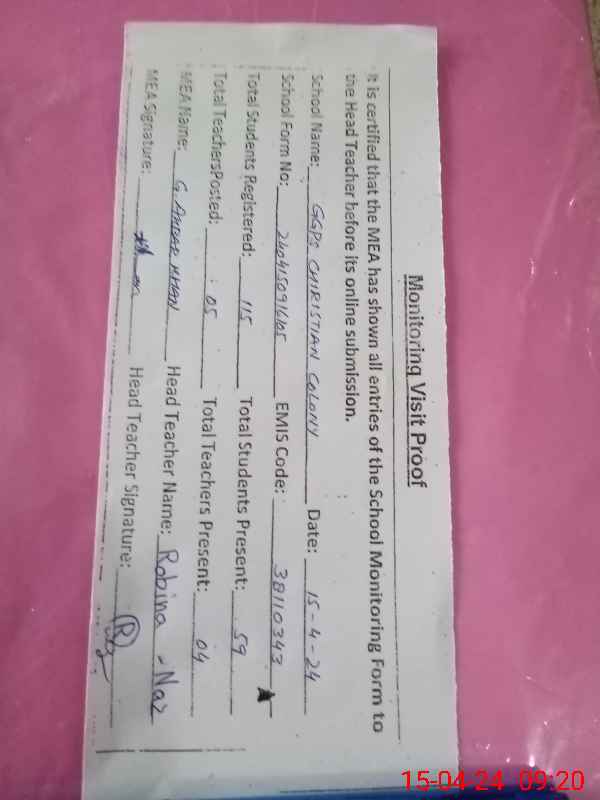 Monitoring Visit Proof
It is certified that the MEA has shown all entries of the School Monitoring Form to
the Head Teacher before its online submission.
School Name: GGPS CHIRISTIAN COLONY Date: 15-4-24
School Form No: EMIS Code: 38110343
Total Students Registered: 115 Total Students Present: 59
Total TeachersPosted: 05 Total Teachers Present: 04
MEA Name: KHAN Head Teacher Name: Robina Naz
MEA Signature: Head Teacher Signature:
15-04-24 09:20